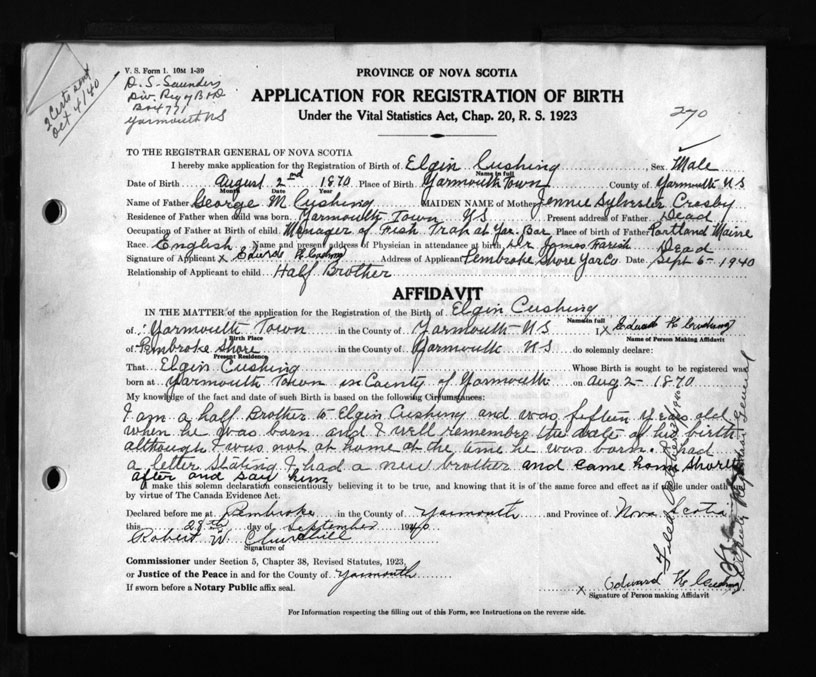 2 Certs sent
Oct 4/40
V. S. Form 1. 10M 1-39
D. S. Saunders
Div. Reg of B & D
Box 771
Yarmouth NS
PROVINCE OF NOVA SCOTIA
APPLICATION FOR REGISTRATION OF BIRTH
Under the Vital Statistics Act, Chap. 20, R. S. 1923
270
TO THE REGISTRAR GENERAL OF NOVA SCOTIA
I hereby make application for the Registration of Birth of Elgin Cushing Sex Male
Name in full
Date of Birth August 2nd 1870 Place of Birth Yarmouth Town County of Yarmouth NS
Month Date Year
Name of Father George M Cushing MAIDEN NAME of Mother Jennie Sylvester Crosby
Residence of Father when child was born. Yarmouth Town NS Present address of Father Dead
Occupation of Father at Birth of child. Manager of Fish Trap at Yar. Bar Place of birth of Father Portland Maine
Race. English Name and present address of Physician in attendance at birth, Dr James Farish Dead
Signature of Applicant x Edward K Cushing Address of Applicant Pembroke Shore Yar Co Date Sept 6 - 1940
Relationship of Applicant to child Half Brother
AFFIDAVIT
IN THE MATTER of the application for the Registration of the Birth of Elgin Cushing
Name in full
of Yarmouth Town in the County of Yarmouth NS I, x Edward K Cushing
Birth Place Name of Person Making Affidavit
of Pembroke Shore in the County of Yarmouth NS do solemnly declare:
Present Residence
That Elgin Cushing Whose Birth is sought to be registered was
born at Yarmouth Town in County of Yarmouth on Aug 2 - 1870
My knowledge of the fact and date of such Birth is based on the following Circumstances:
I am a half Brother to Elgin Cushing and was fifteen years old
when he was born and I well remember the date of his birth
although I was not at home at the time he was born. I had
a letter stating I had a new brother and came home shortly
after and saw him
make this solemn declaration conscientiously believing it to be true, and knowing that it is of the same force and effect as if made under oath
by virtue of The Canada Evidence Act.
Declared before me at Pembroke in the County of Yarmouth and Province of Nova Scotia
this 28th day of September 1940
Robert W. Churchill
Signature of
Commissioner under Section 5, Chapter 38, Revised Statutes, 1923,
or Justice of the Peace in and for the County of Yarmouth
If sworn before a Notary Public affix seal.
x Edward K Cushing
Signature of Person making Affidavit
For Information respecting the filling out of this Form, see Instructions on the reverse side.
Filed
Deputy Registrar General